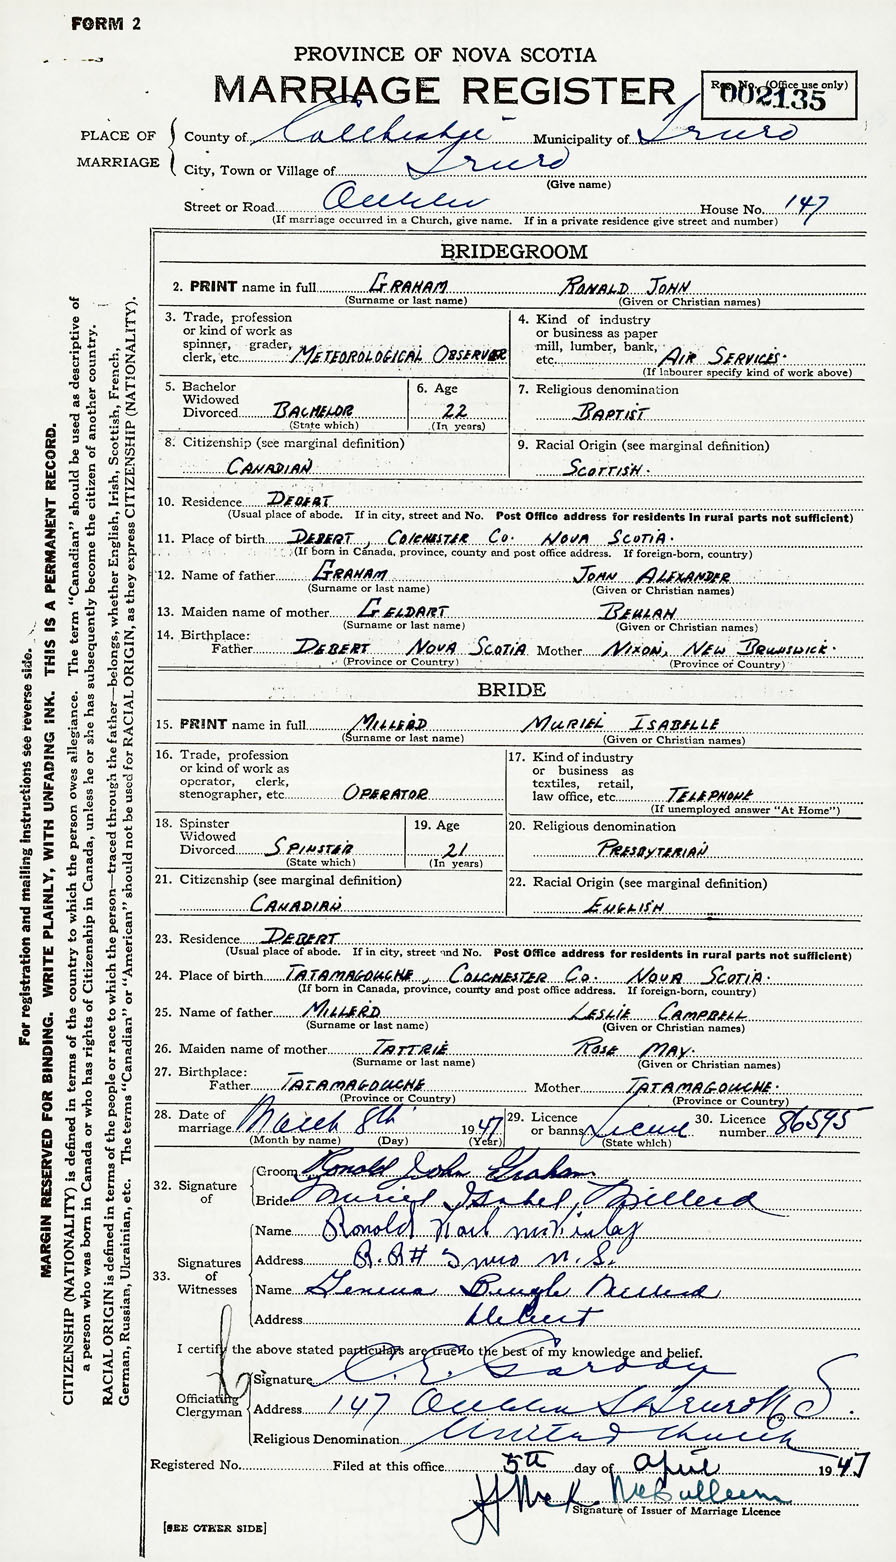 FORM 2
PROVINCE OF NOVA SCOTIA
MARRIAGE REGISTER
Reg. No. (Office use only)
002135
PLACE OF MARRIAGE
County of Colchester Municipality of Truro
City, Town or Village of Truro
(Give name)
Street or Road Queen House No. 147
(If marriage occurred in a Church, give name. If in a private residence give street and number)
BRIDEGROOM
2. PRINT name in full GRAHAM RONALD JOHN
(Surname or last name) (Given or Christian names)
3. Trade, profession or kind of work as spinner, grader, clerk, etc. METEOROLOGICAL OBSERVER
4. Kind of industry or business as paper mill, lumber, bank, etc. AIR SERVICES.
(If labourer specify kind of work above)
5. Bachelor Widowed Divorced BACHELOR
(State which)
6. Age 22
(In years)
7. Religious denomination
BAPTIST
8. Citizenship (see marginal definition)
CANADIAN
9. Racial Origin (see marginal definition)
SCOTTISH.
10. Residence DEBERT
(Usual place of abode. If in city, street and No. Post Office address for residents in rural parts not sufficient)
11. Place of birth DEBERT, COLCHESTER CO. NOVA SCOTIA.
(If born in Canada, province, county and post office address. If foreign-born, country)
12. Name of father GRAHAM JOHN ALEXANDER
(Surname or last name) (Given or Christian names)
13. Maiden name of mother GELDART BEULAH
(Surname or last name) (Given or Christian names)
14. Birthplace:
Father DEBERT NOVA SCOTIA Mother NIXON, NEW BRUNSWICK.
(Province or Country) (Province or Country)
BRIDE
15. PRINT name in full MILLERD MURIEL ISABELLE
(Surname or last name) (Given or Christian names)
16. Trade, profession or kind of work as operator, clerk, stenographer, etc. OPERATOR
17. Kind of industry or business as textiles, retail, law office, etc. TELEPHONE
(If unemployed answer "At Home")
18. Spinster Widowed Divorced SPINSTER
(State which)
19. Age 21
(In years)
20. Religious denomination
PRESBYTERIAN
21. Citizenship (see marginal definition)
CANADIAN
22. Racial Origin (see marginal definition)
ENGLISH
23. Residence DEBERT
(Usual place of abode. If in city, street and No. Post Office address for residents in rural parts not sufficient)
24. Place of birth TATAMAGOUCHE, COLCHESTER CO. NOVA SCOTIA.
(If born in Canada, province, county and post office address. If foreign-born, country)
25. Name of father MILLERD LESLIE CAMPBELL
(Surname or last name) (Given or Christian names)
26. Maiden name of mother TATTRIE ROSE MAY.
(Surname or last name) (Given or Christian names)
27. Birthplace:
Father TATAMAGOUCHE Mother TATAMAGOUCHE.
(Province or Country) (Province or Country)
28. Date of marriage March 8th 1947
(Month by name) (Day) (Year)
29. Licence or banns License
(State which)
30. Licence number 86595
32. Signature of
Groom Ronald John Graham
Bride Muriel Isabel Millerd
33. Signatures of Witnesses
Name Ronald Karl McKinlay
Address R.R# Truro N.S.
Name Millerd
Address Debert
I certify the above stated particulars are true to the best of my knowledge and belief.
Officiating Clergyman
Signature C. E. Gordon
Address 147 Queen St Truro N.S.
Religious Denomination United Church
Registered No. Filed at this office 5th day of April 1947
Signature of Issuer of Marriage Licence
[SEE OTHER SIDE]
For registration and mailing instructions see reverse side.
MARGIN RESERVED FOR BINDING. WRITE PLAINLY, WITH UNFADING INK. THIS IS A PERMANENT RECORD.
CITIZENSHIP (NATIONALITY) is defined in terms of the country to which the person owes allegiance. The term "Canadian" should be used as descriptive of
a person who was born in Canada or who has rights of Citizenship in Canada, unless he or she has subsequently become the citizen of another country.
RACIAL ORIGIN is defined in terms of the people or race to which the person—traced through the father—belongs, whether English, Irish, Scottish, French,
German, Russian, Ukrainian, etc. The terms "Canadian" or "American" should not be used for RACIAL ORIGIN, as they express CITIZENSHIP (NATIONALITY).